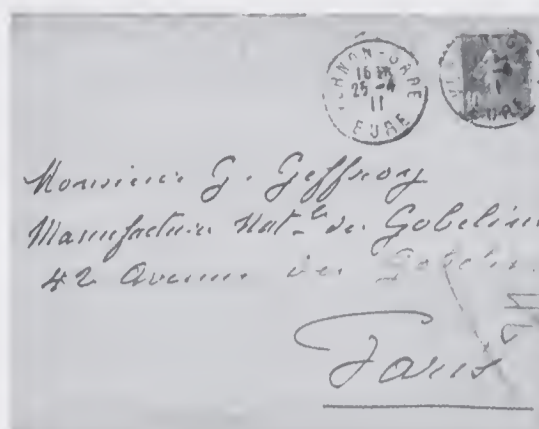 VERNON-GARE
16
25 -4
11
EURE
EURE
Monsieur G. Geffroy
Manufacture Nat.le des Gobelins
42 Avenue des Gobelins
Paris